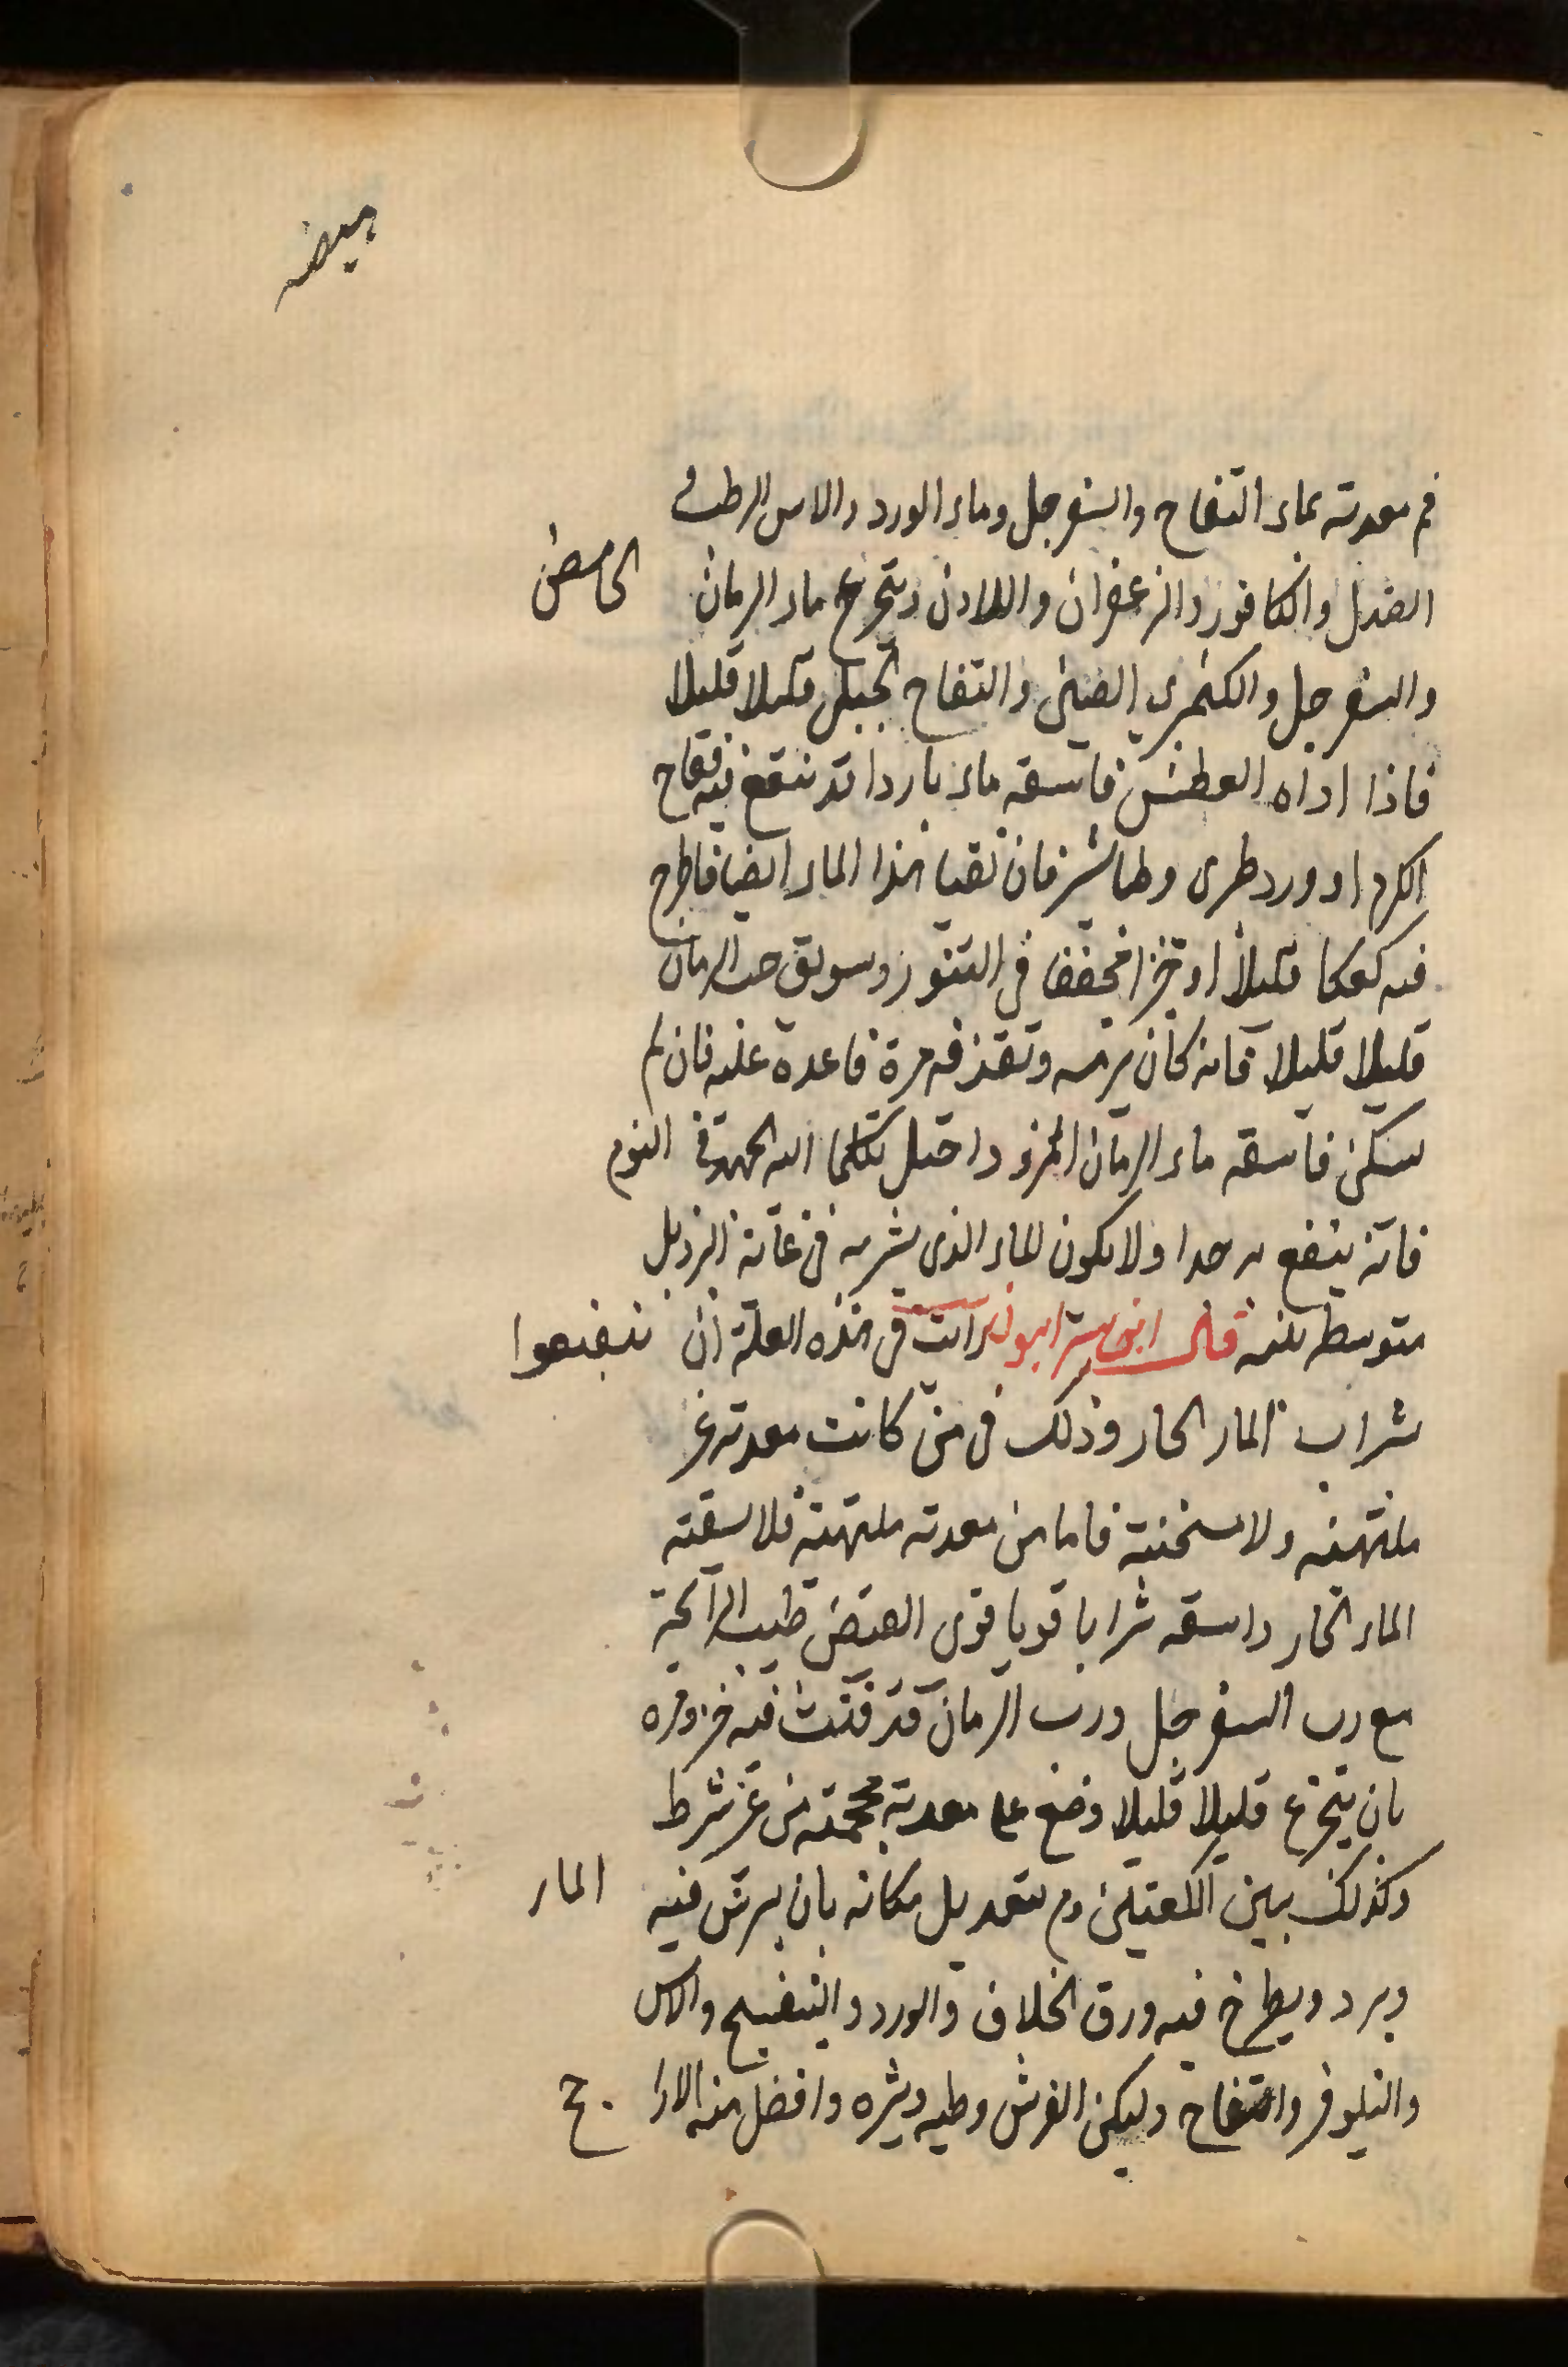 هيضه
فم معدته بماء التفاح والسفرجل وماء الورد والاس الرطب و
الصندل والكافور والزعفران واللادن ويتجرع ماء الرمان الحامض
والسفرجل والكمثرى الصينى والتفاح الجبلى قليلا قليلا
فاذا اذاه العطش فاسقه ماء باردا قد ينقع فيه فقاح
الكرم او ورد طرى وطباشير فان تقيا هذا الماء ايضا فاطرح
فيه كعكا قليلا او خبزا مجففا فى التنور وسويق حب الرمان
قليلا قليلا فانه كان يرميه وتقذفه مرة فاعده عليه فان لم
يسكن فاسقه ماء الرمان المز واحتل بكلما اليه الجهد فى النوم
فانه ينفع به جدا ولا يكون الماء الذى يشربه فى غاية البرد بل
متوسط منه قال ابن سرابيون رايت فى هذه العلة ان ينتفعوا
شراب الماء الحار وذلك فى من كانت معدته غير
ملتهبة ولا مسخنة فاما من معدته ملتهبة فلا يسقيه
الماء الحار واسقه شرابا قويا قوى القبض طيب الرائحة
مع رب السفرجل ورب الرمان قد فتت فيه خبز ومره
بان يتجرع قليلا قليلا وضع على معدته محجمة من غير شرط
وكذلك بين الكتفين ومر بتعديل مكانه بان يرش فيه الماء
ويبرد ويطرح فيه ورق الخلاف والورد والبنفسج والاس
والنيلوفر والتفاح وليكن الفرش وطيه وثيره وافضل منه الارا
جح